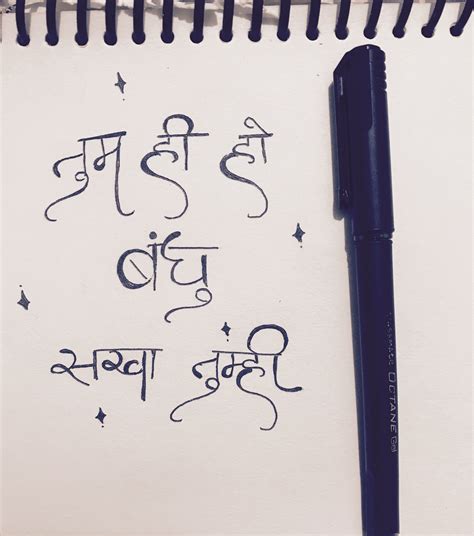 तुम ही हो
बंधु
सखा तुम्ही
OCTANE